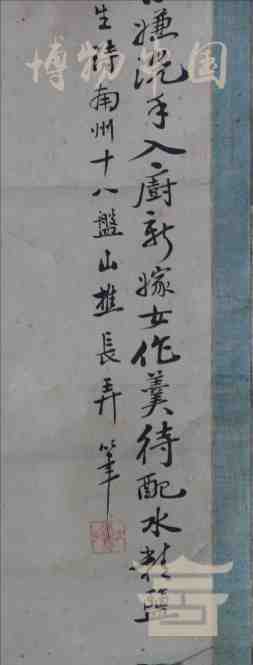 嫌洗手入廚新嫁女作羹待配水精鹽
生詩南州十八盤山樵長弄筆
博物中国